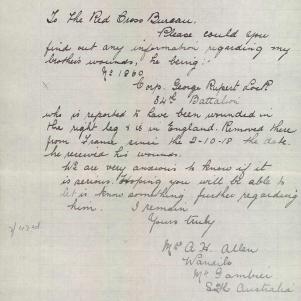 To The Red Cross Bureau.
Please could you
find out any information regarding my
brother's wounds, he being:-
No 1860
Corp. George Rupert
34th Battalion
who is reported to have been wounded in
the right leg & is in England. Removed there
from France since the 2-10-18 the date
he received his wounds.
We are very anxious to know if it
is serious. Hoping you will be able to
let us know something further regarding
him. I remain
Yours truly
Mrs A. H. Allen
Wandilo
Mt Gambier
Sth Australia